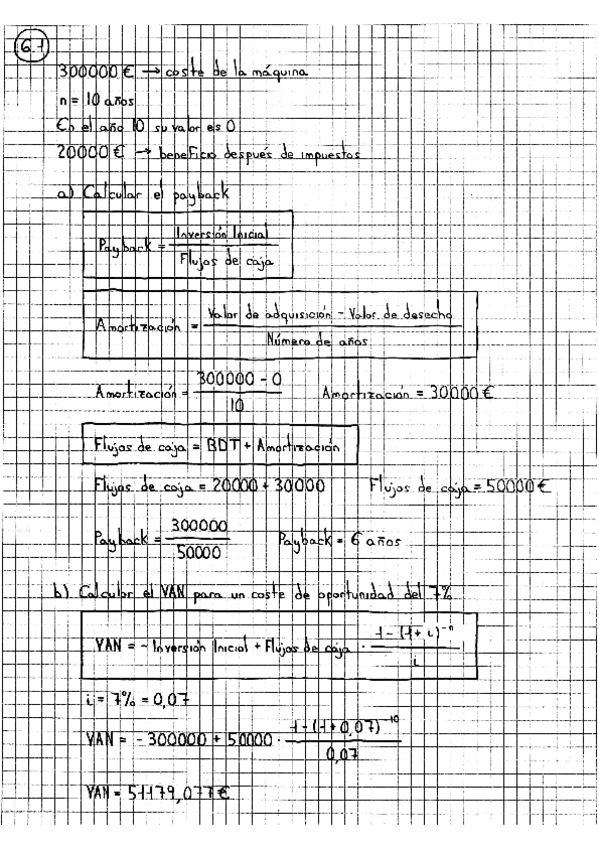 6.1
300000 € → coste de la máquina
n = 10 años
En el año 10 su valor es 0
20000 € → beneficio después de impuestos
a) Calcular el payback
Payback = Inversión Inicial / Flujos de caja
Amortización = Valor de adquisición - Valor de desecho / Número de años
Amortización = 300000 - 0 / 10 Amortización = 30000 €
Flujos de caja = BDT + Amortización
Flujos de caja = 20000 + 30000 Flujos de caja = 50000 €
Payback = 300000 / 50000 Payback = 6 años
b) Calcular el VAN para un coste de oportunidad del 7%
VAN = - Inversión Inicial + Flujos de caja · 1 - (1 + i)^-n / i
i = 7% = 0,07
VAN = - 300000 + 50000 · 1 - (1 + 0,07)^-10 / 0,07
VAN = 51179,077 €